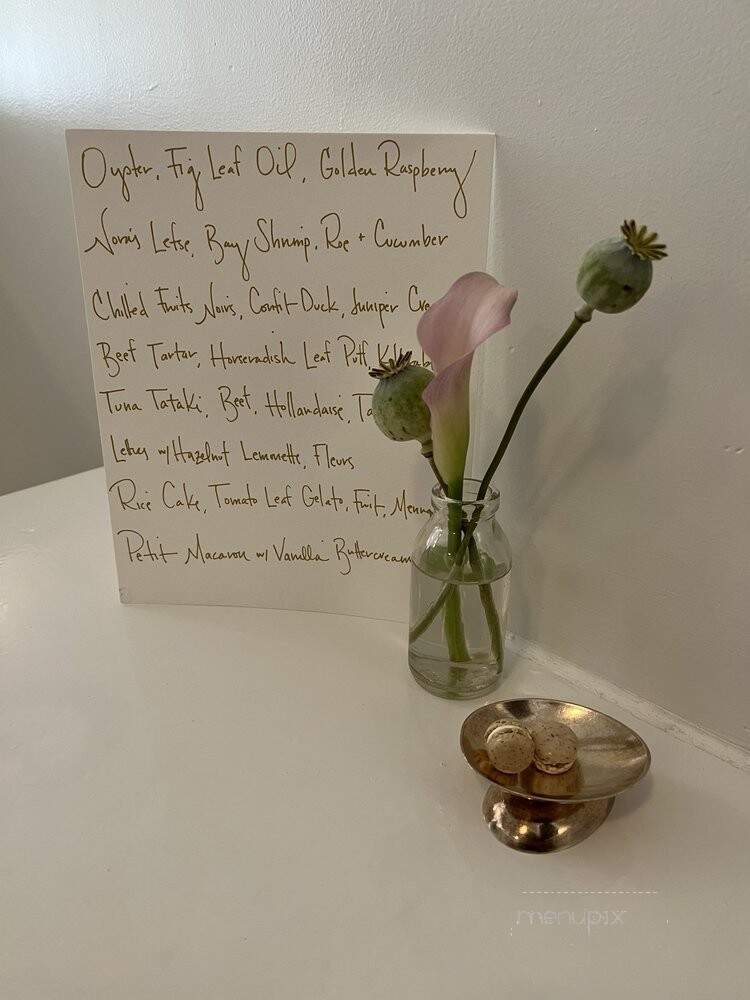 Oyster, Fig Leaf Oil, Golden Raspberry
Nora's Lefse, Bay Shrimp, Roe + Cucumber
Chilled Fruits Noirs, Confit Duck, Juniper
Beef Tartar, Horseradish Leaf Puff
Tuna Tataki, Beet, Hollandaise,
w/ Hazelnut Lemmette, Fleurs
Rice Cake, Tomato Leaf Gelato, Fruit,
Petit Macaron w/ Vanilla Buttercream
menupix